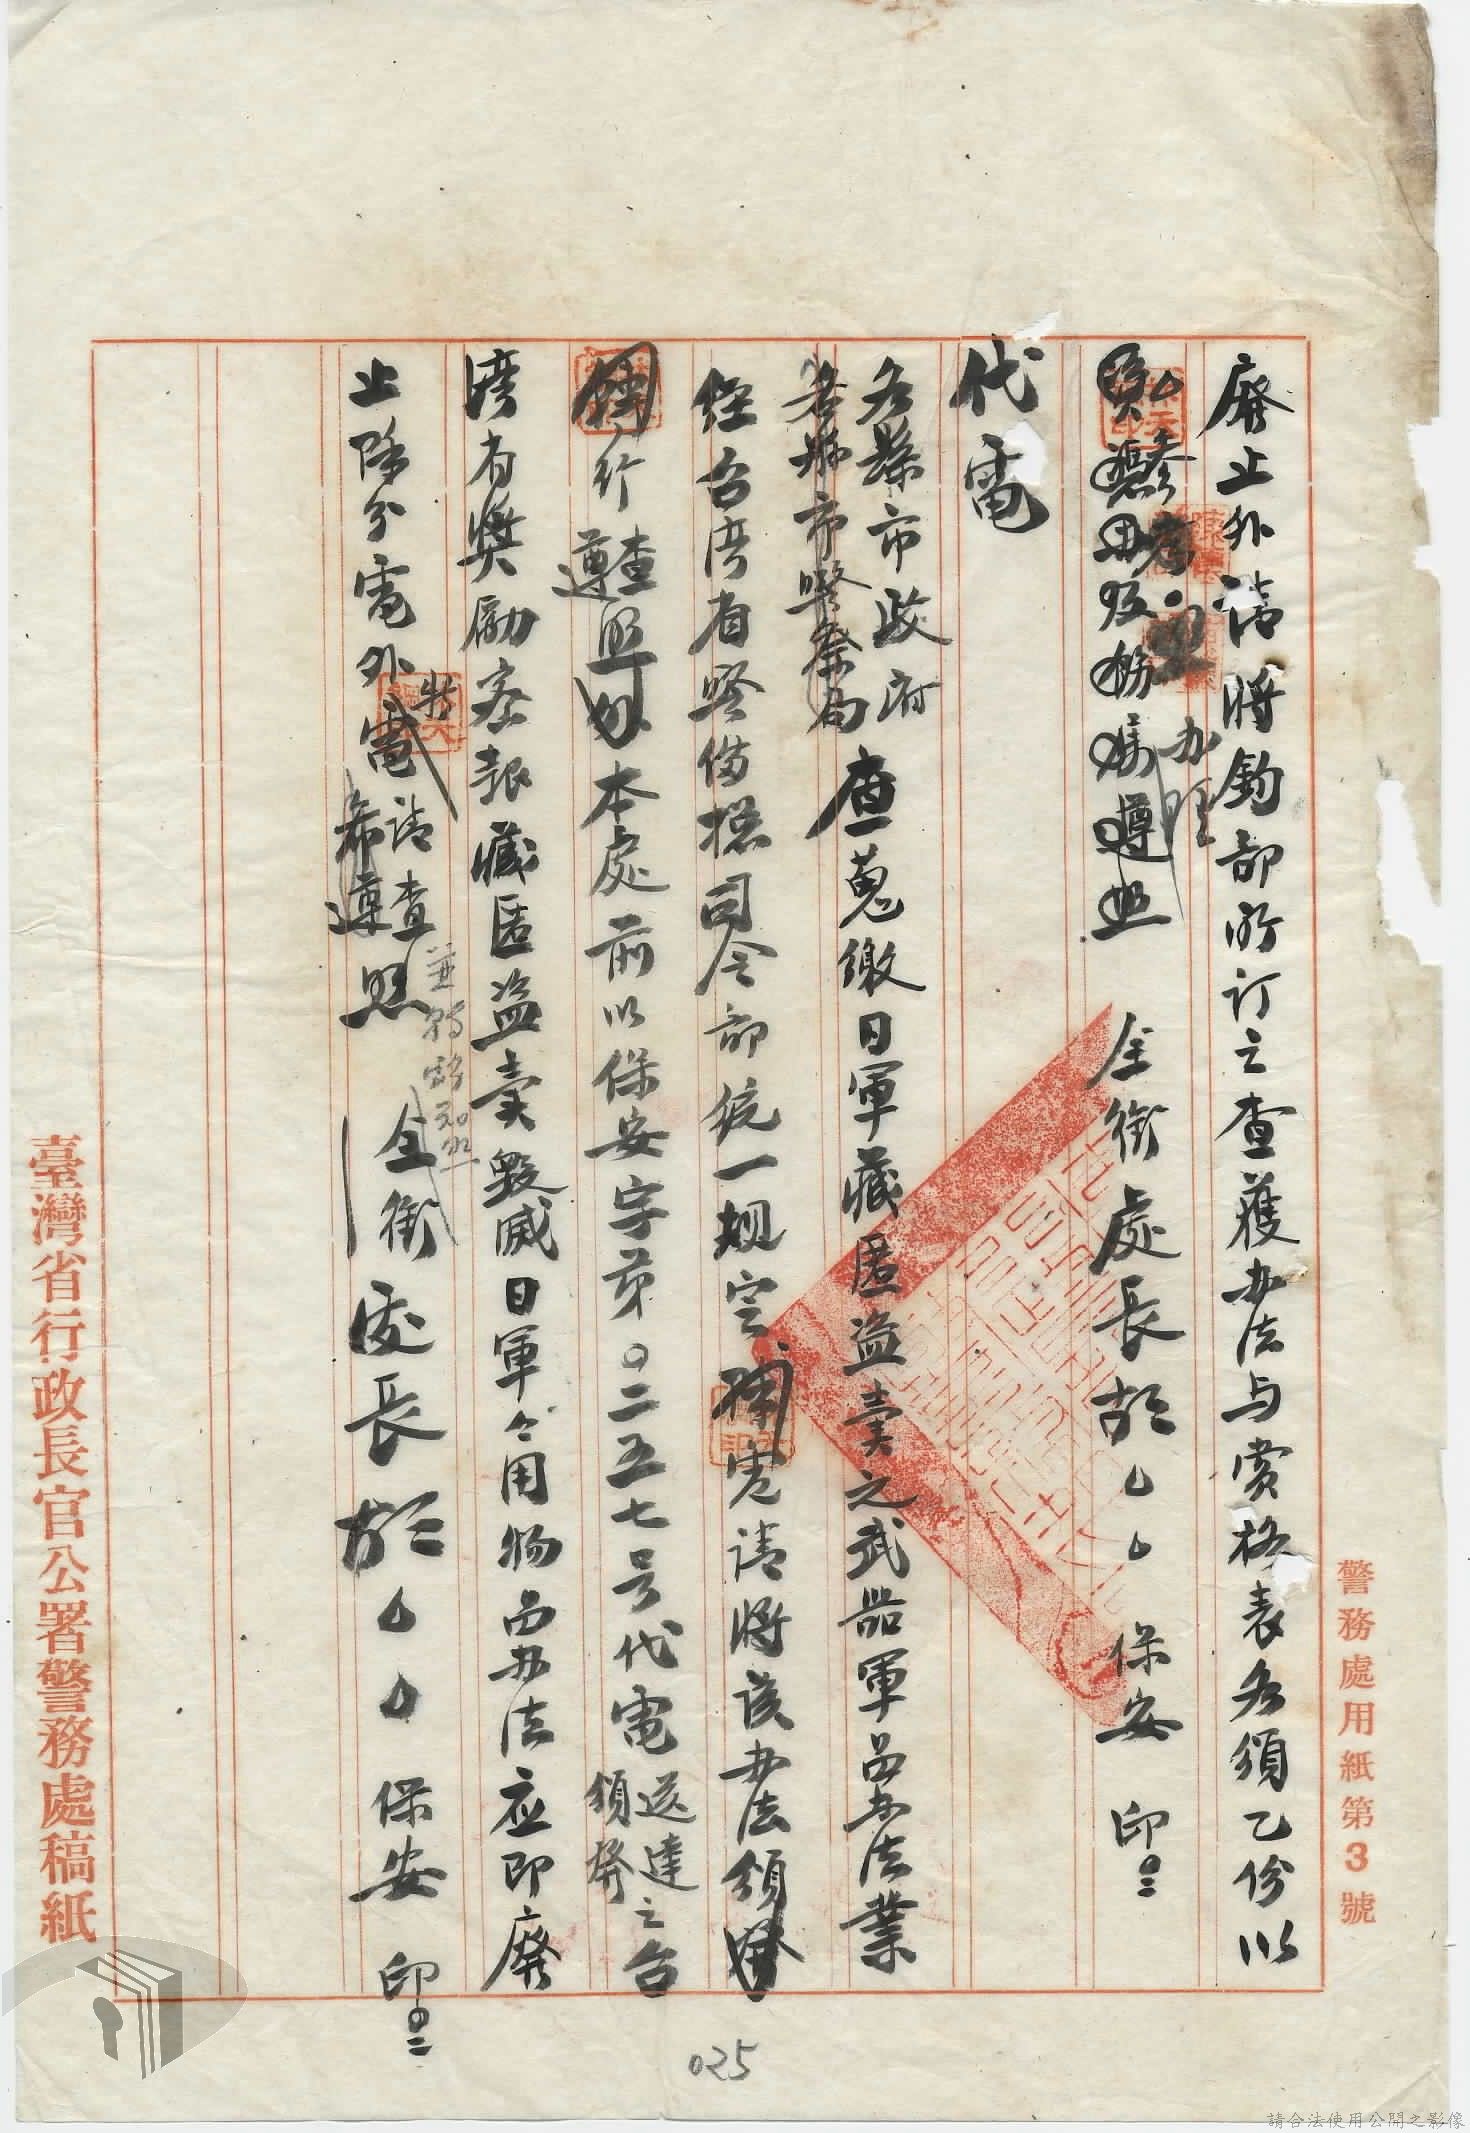 警務處用紙第3號
廢止外請將鈞部所訂之查獲办法与賞格表各頒乙份以
办理
全銜處長胡
保安
印
代電
各縣市政府
各縣市警察局
查蒐繳日軍藏匿盜賣之武器軍品办法業
經台湾省警備總司令部統一規定
請將該办法頒
行
查照
遵
本處前以保安字第〇二五七号代電
送達之台
頒發
湾省獎勵密報藏匿盜賣毀滅日軍公用物品办法应即廢
止除分電外
特
電
請查
希遵
照
並轉飭知照
全銜
處長胡
保安
印
臺灣省行政長官公署警務處稿紙
025
請合法使用公開之影像